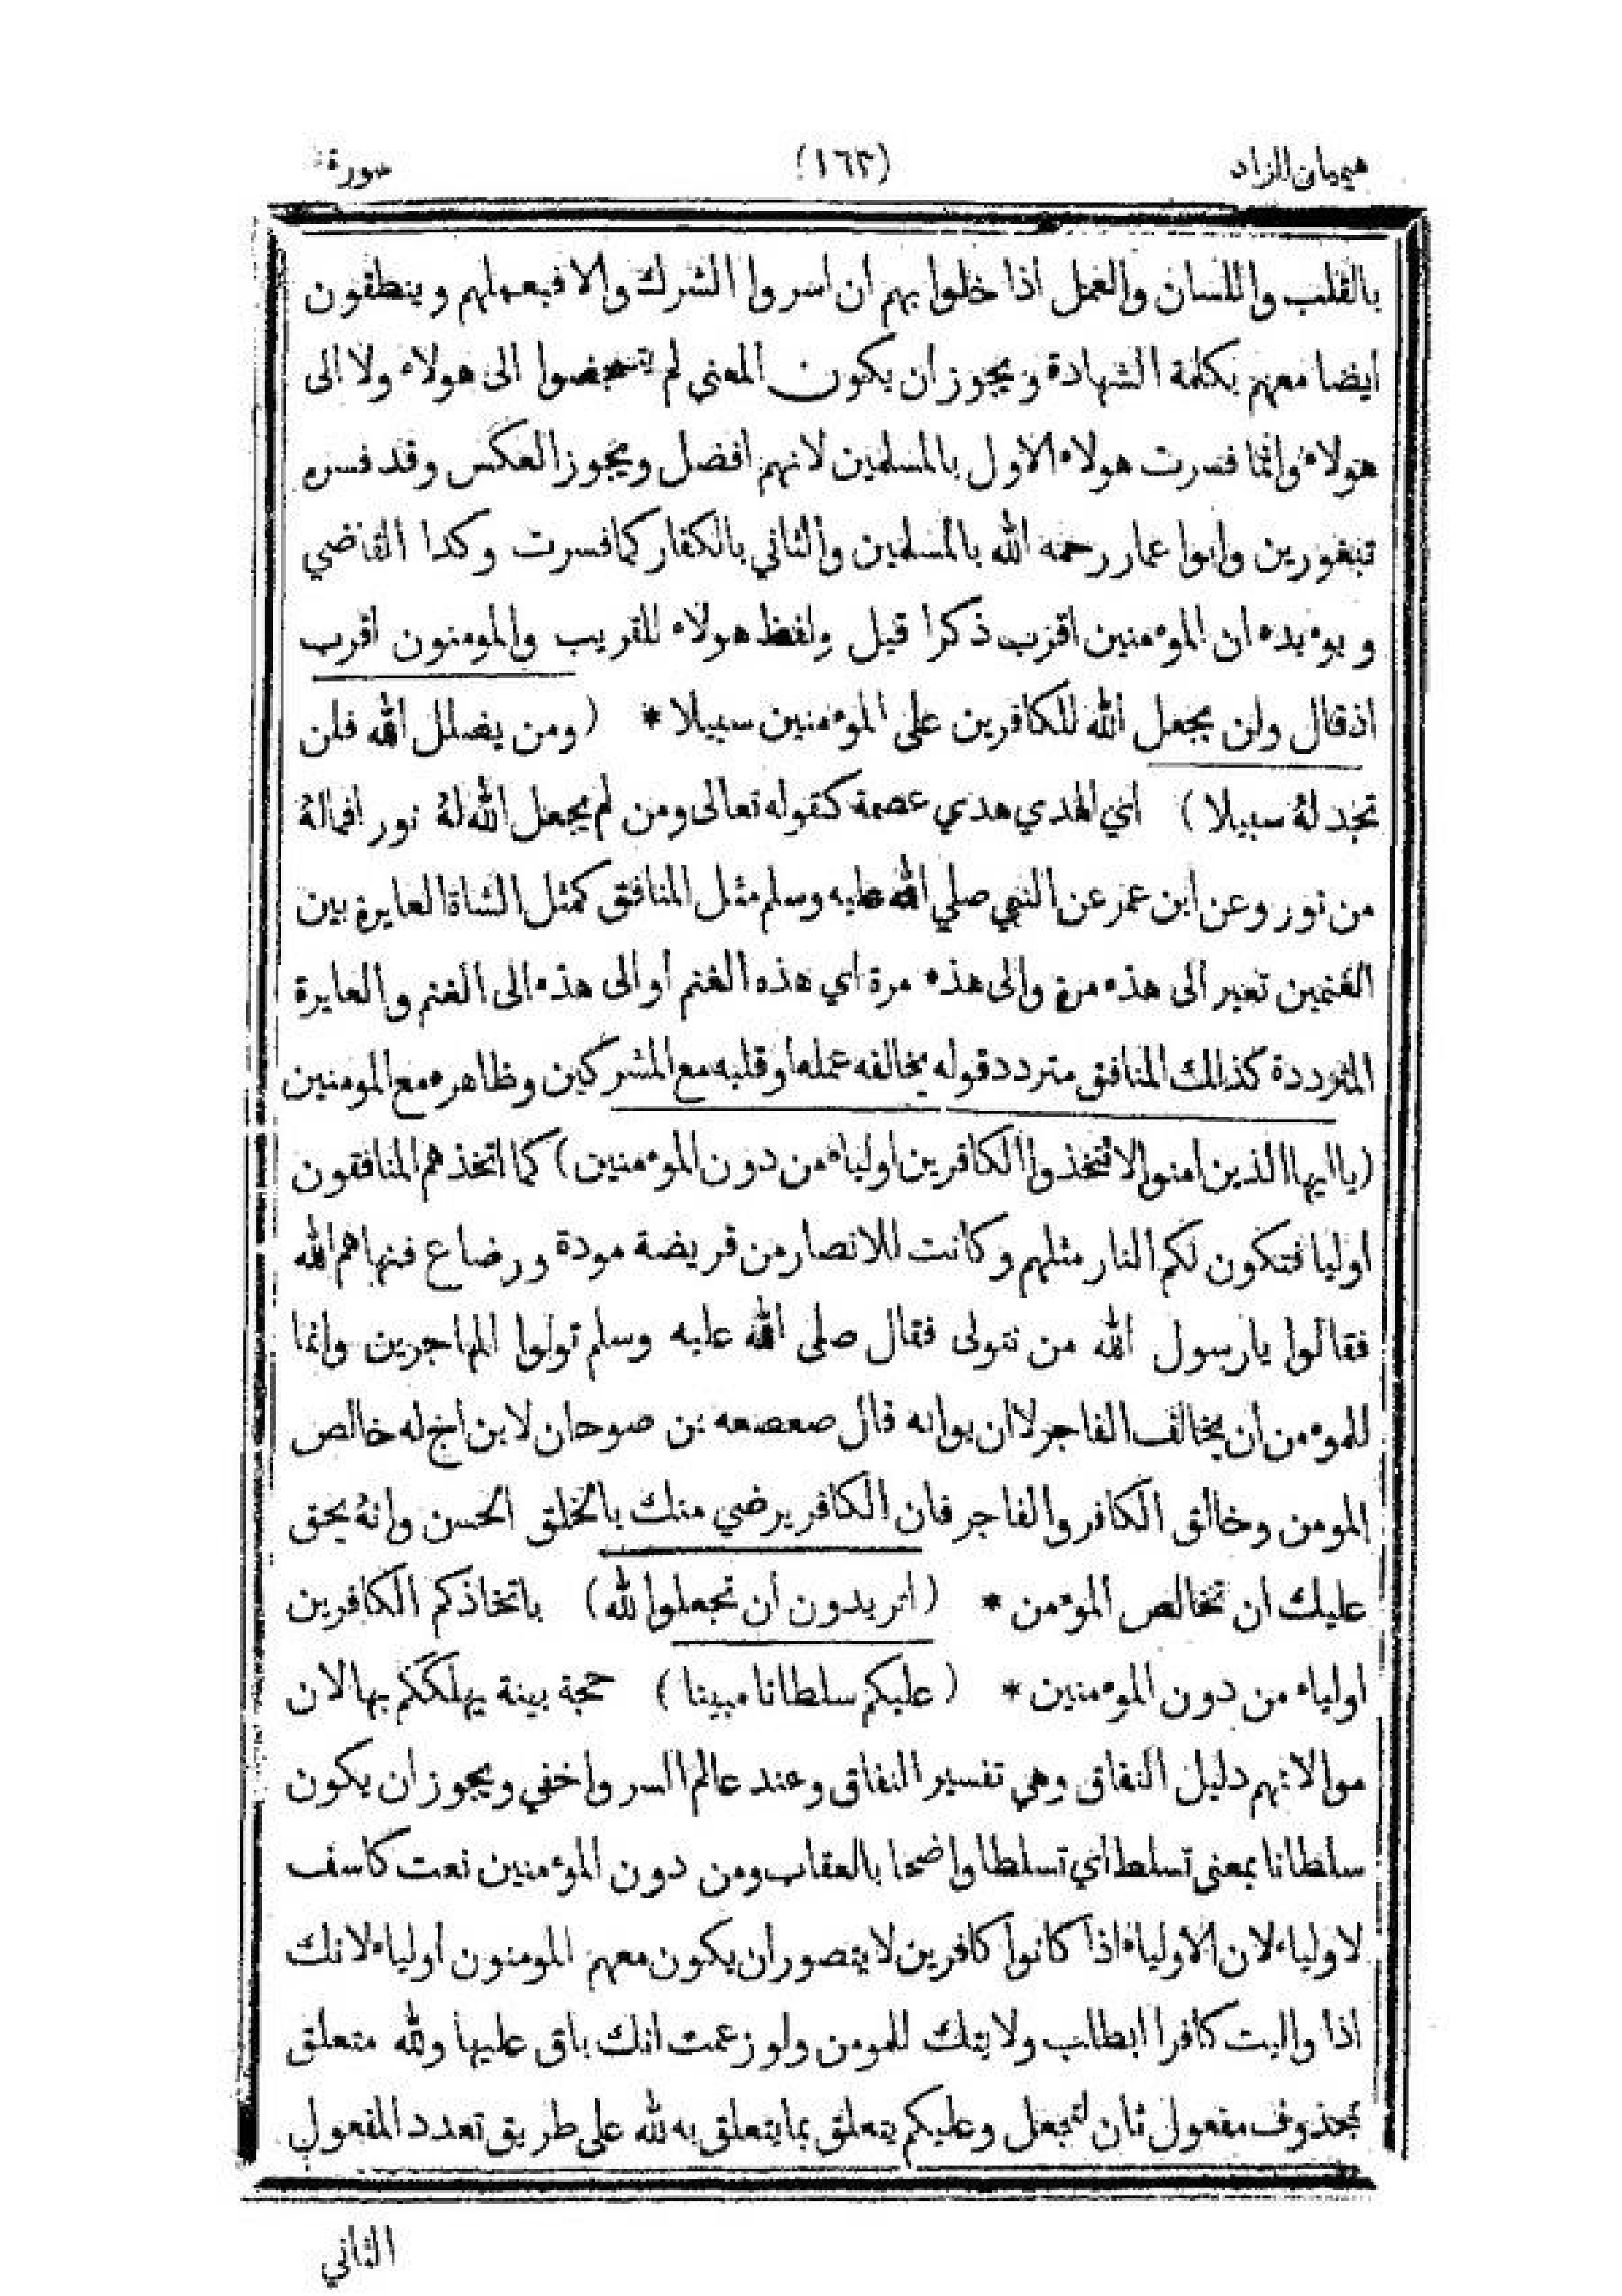 هيميان الزاد (١٦٢) سورة
بالقلب واللسان والعمل اذا خلوا بهم ان اسروا الشرك والا فبعملهم وينطقون
ايضا معهم بكلمة الشهادة ويجوز ان يكون المعنى لم يتمحضوا الى هولاء ولا الى
هولاء وانما فسرت هولاء الاول بالمسلمين لانهم افضل ويجوز العكس وقد فسره
تبغورين وابوا عمار رحمه الله بالمسلمين والثاني بالكفار كما فسرت وكدا القاضي
وبوءيده ان الموءمنين اقرب ذكرا قبل ولفظ هولاء للقريب والمومنون اقرب
اذ قال ولن يجعل الله للكافرين على الموءمنين سبيلا * (ومن يضلل الله فلن
تجد لهُ سبيلا) اي الهدي هدي عصمة كقوله تعالى ومن لم يجعل الله لهُ نور افمالهُ
من نور وعن ابن عمر عن النبي صلي الله عليه وسلم مثل المنافق كمثل الشاة العايرة بين
الغنمين تعير الى هذه مرة والى هذه مرة اي هذه الغنم او الى هذه الى الغنم والعايرة
المترددة كذالك المنافق متردد قوله يخالفه عمله او قلبه مع المشركين وظاهره مع المومنين
(يا ايها الذين امنوا لا تتخذوا الكافرين اولياء من دون الموءمنين) كما اتخذهم المنافقون
اوليا فتكون لكم النار مثلهم وكانت للانصار من قريضة مودة ورضاع فنهاهم الله
فقالوا يا رسول الله من نتولى فقال صلى الله عليه وسلم تولوا المهاجرين وانما
للموءمن ان يخالف الفاجر لا ان يوانه قال صعصعه بن صوحان لابن اخ له خالص
المومن وخالق الكافر والفاجر فان الكافر يرضي منك بالخلق الحسن وانهُ يحق
عليك ان تخالص الموءمن * (اتريدون ان تجعلوا لله) باتخاذكم الكافرين
اولياء من دون الموءمنين * (عليكم سلطانا مبينا) حجة بينة يهلككم بها لان
موالاتهم دليل النفاق وهي تفسير النفاق وعند عالم السر واخفي ويجوز ان يكون
سلطانا بمعنى تسلط اي تسلطا واضحا بالعقاب ومن دون الموءمنين نعت كاسف
لاولياء لان الاولياء اذا كانوا كافرين لا يتصور ان يكون معهم المومنون اولياء لانك
اذا واليت كافرا ابطلب ولايتك للمومن ولو زعمت انك باق عليها ولله متعلق
بمحذوف مفعول ثان لتجعل وعليكم يتعلق بما يتعلق به لله على طريق تعدد المفعول
الثاني